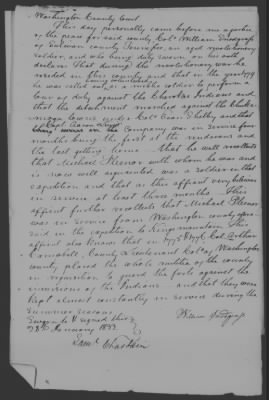 Washington County Court
This day personally came before me a justice
of the peace for said county Col. William Snodgrass
of Sullivan County Tennessee, an aged revolutionary
soldier, and who being duly sworn on his oath
declares that during the revolutionary war he
resided in this county and that in the year 1779
he was called out, as a militia to perform a
tour of duty against the Cherokee Indians and
that the detachment marched against the Chicka-
mogga towns under Col. Evan Shelby and that
the Company was in service from
months being the first at the rendezvous and
the last getting home. That he well recollects
that Michael Fleenor with whom he was and
is now well acquainted was a soldier in that
expedition and that as this affiant verily believes
in service at least three months. This
affiant further recollects that Michael Fleenor
was in service from Washington county afore-
said in the expedition to Kings mountain. This
affiant also knows that in 1775 & 1776 Col. Arthur
Campbell, County Lieutenant Col. of Washington
county placed the whole militia of the county
in requisition to guard the forts against the
incursions of the Indians and that they were
kept almost constantly in service during the
summer seasons
William Snodgrass
Sworn to & signed this
28th January 1833
Saml.